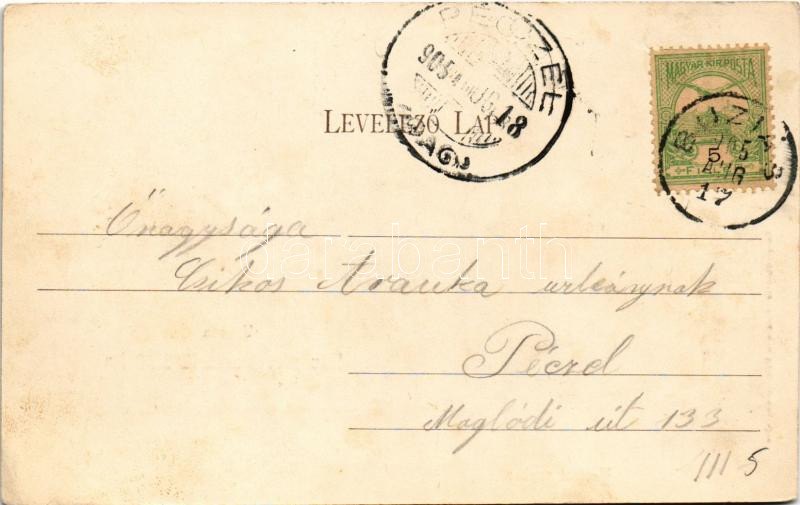 PÉCZEL
905
18
MAGYAR KIR. POSTA
5
LEVELEZŐ LAP
17
Őnagysága
Csikos Aranka urleánynak
darabanth
Péczel
Maglódi út 133
III 5